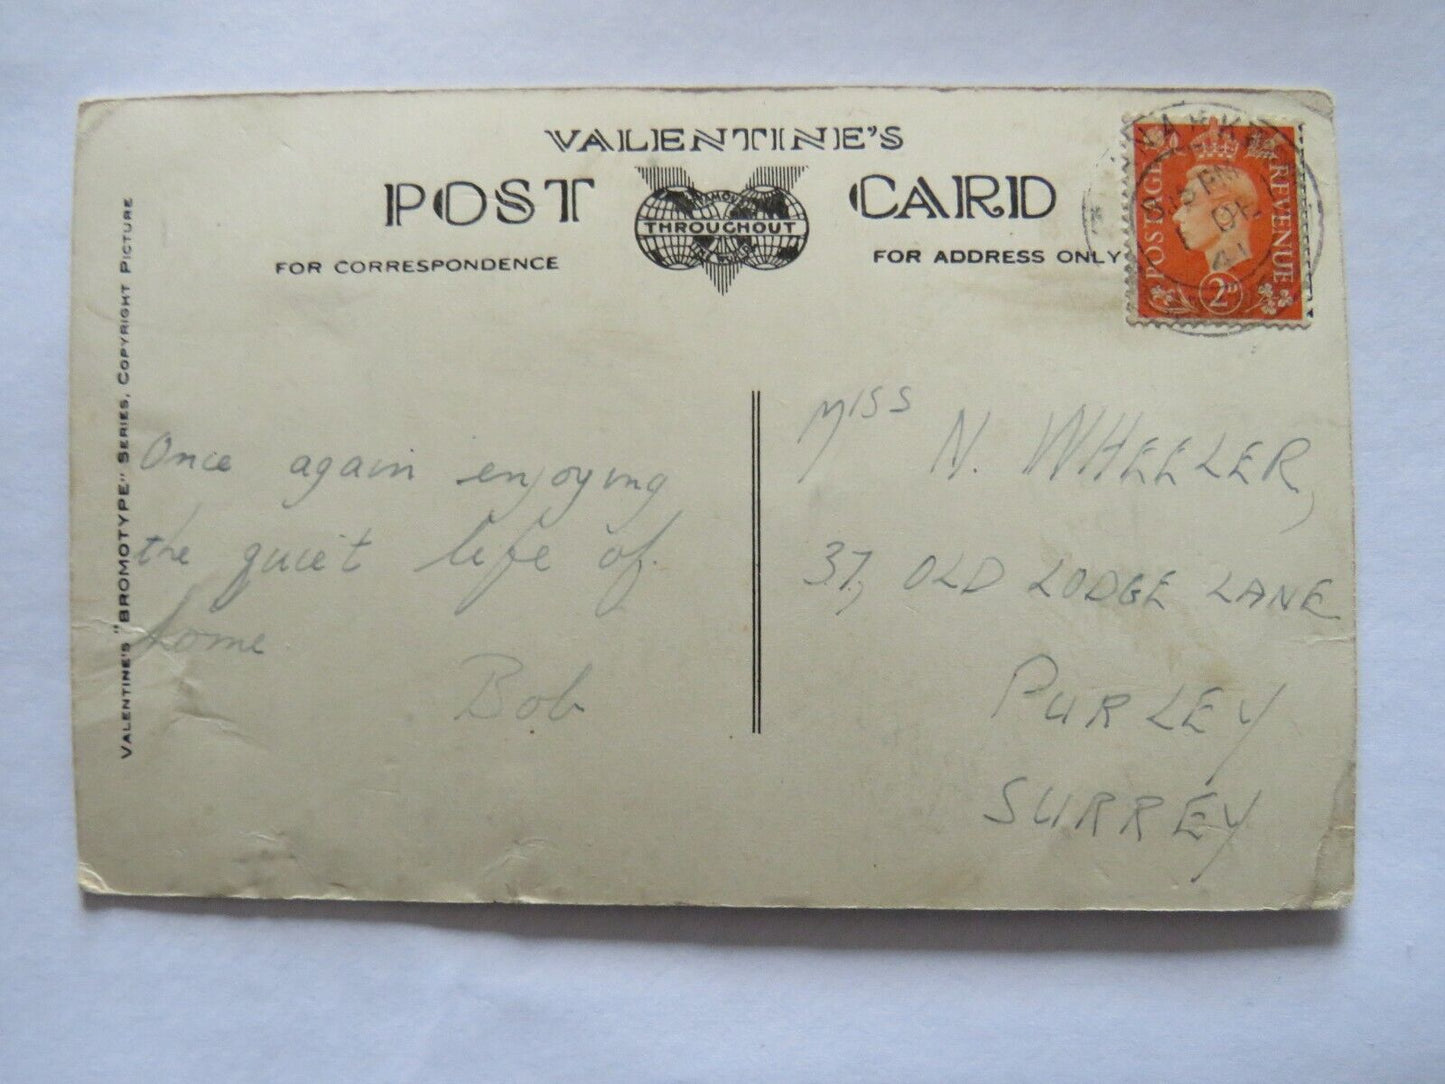 VALENTINE'S
POST CARD
FAMOUS
THROUGHOUT
THE WORLD
FOR CORRESPONDENCE
FOR ADDRESS ONLY
VALENTINE'S "BROMOTYPE" SERIES, COPYRIGHT PICTURE
POSTAGE
REVENUE
2D
PM
DE
41
Once again enjoying
the quiet life of
home
Bob
MISS N. WHEELER,
37, OLD LODGE LANE
PURLEY
SURREY